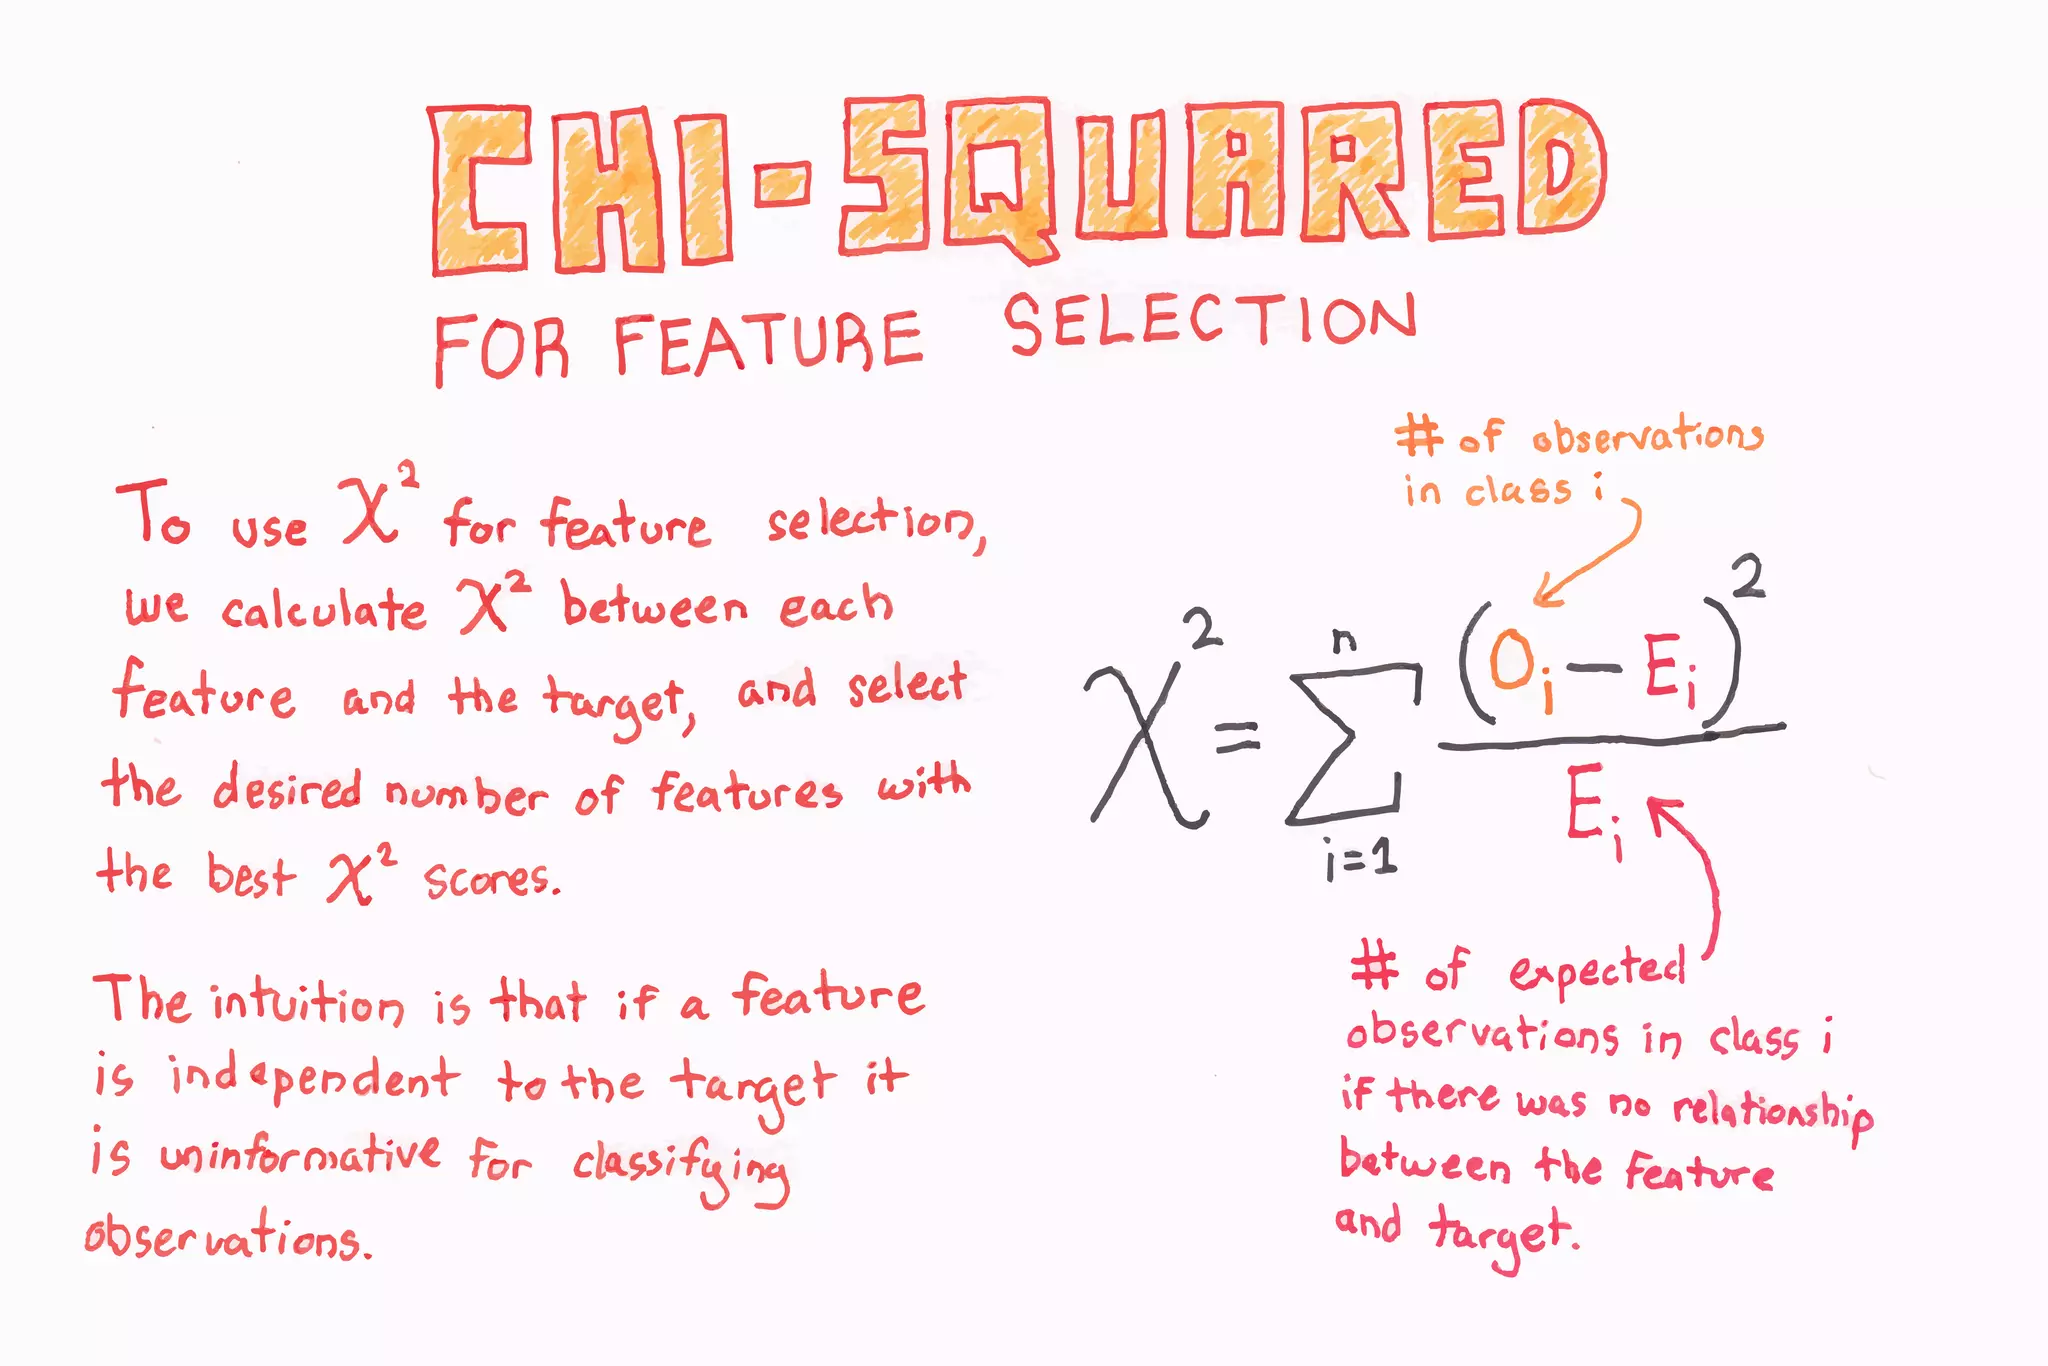 CHI-SQUARED
FOR FEATURE SELECTION
To use χ² for feature selection,
we calculate χ² between each
feature and the target, and select
the desired number of features with
the best χ² scores.
The intuition is that if a feature
is independent to the target it
is uninformative for classifying
observations.
# of observations
in class i
χ² = ∑ⁿᵢ₌₁ (Oᵢ − Eᵢ)² / Eᵢ
# of expected
observations in class i
if there was no relationship
between the feature
and target.